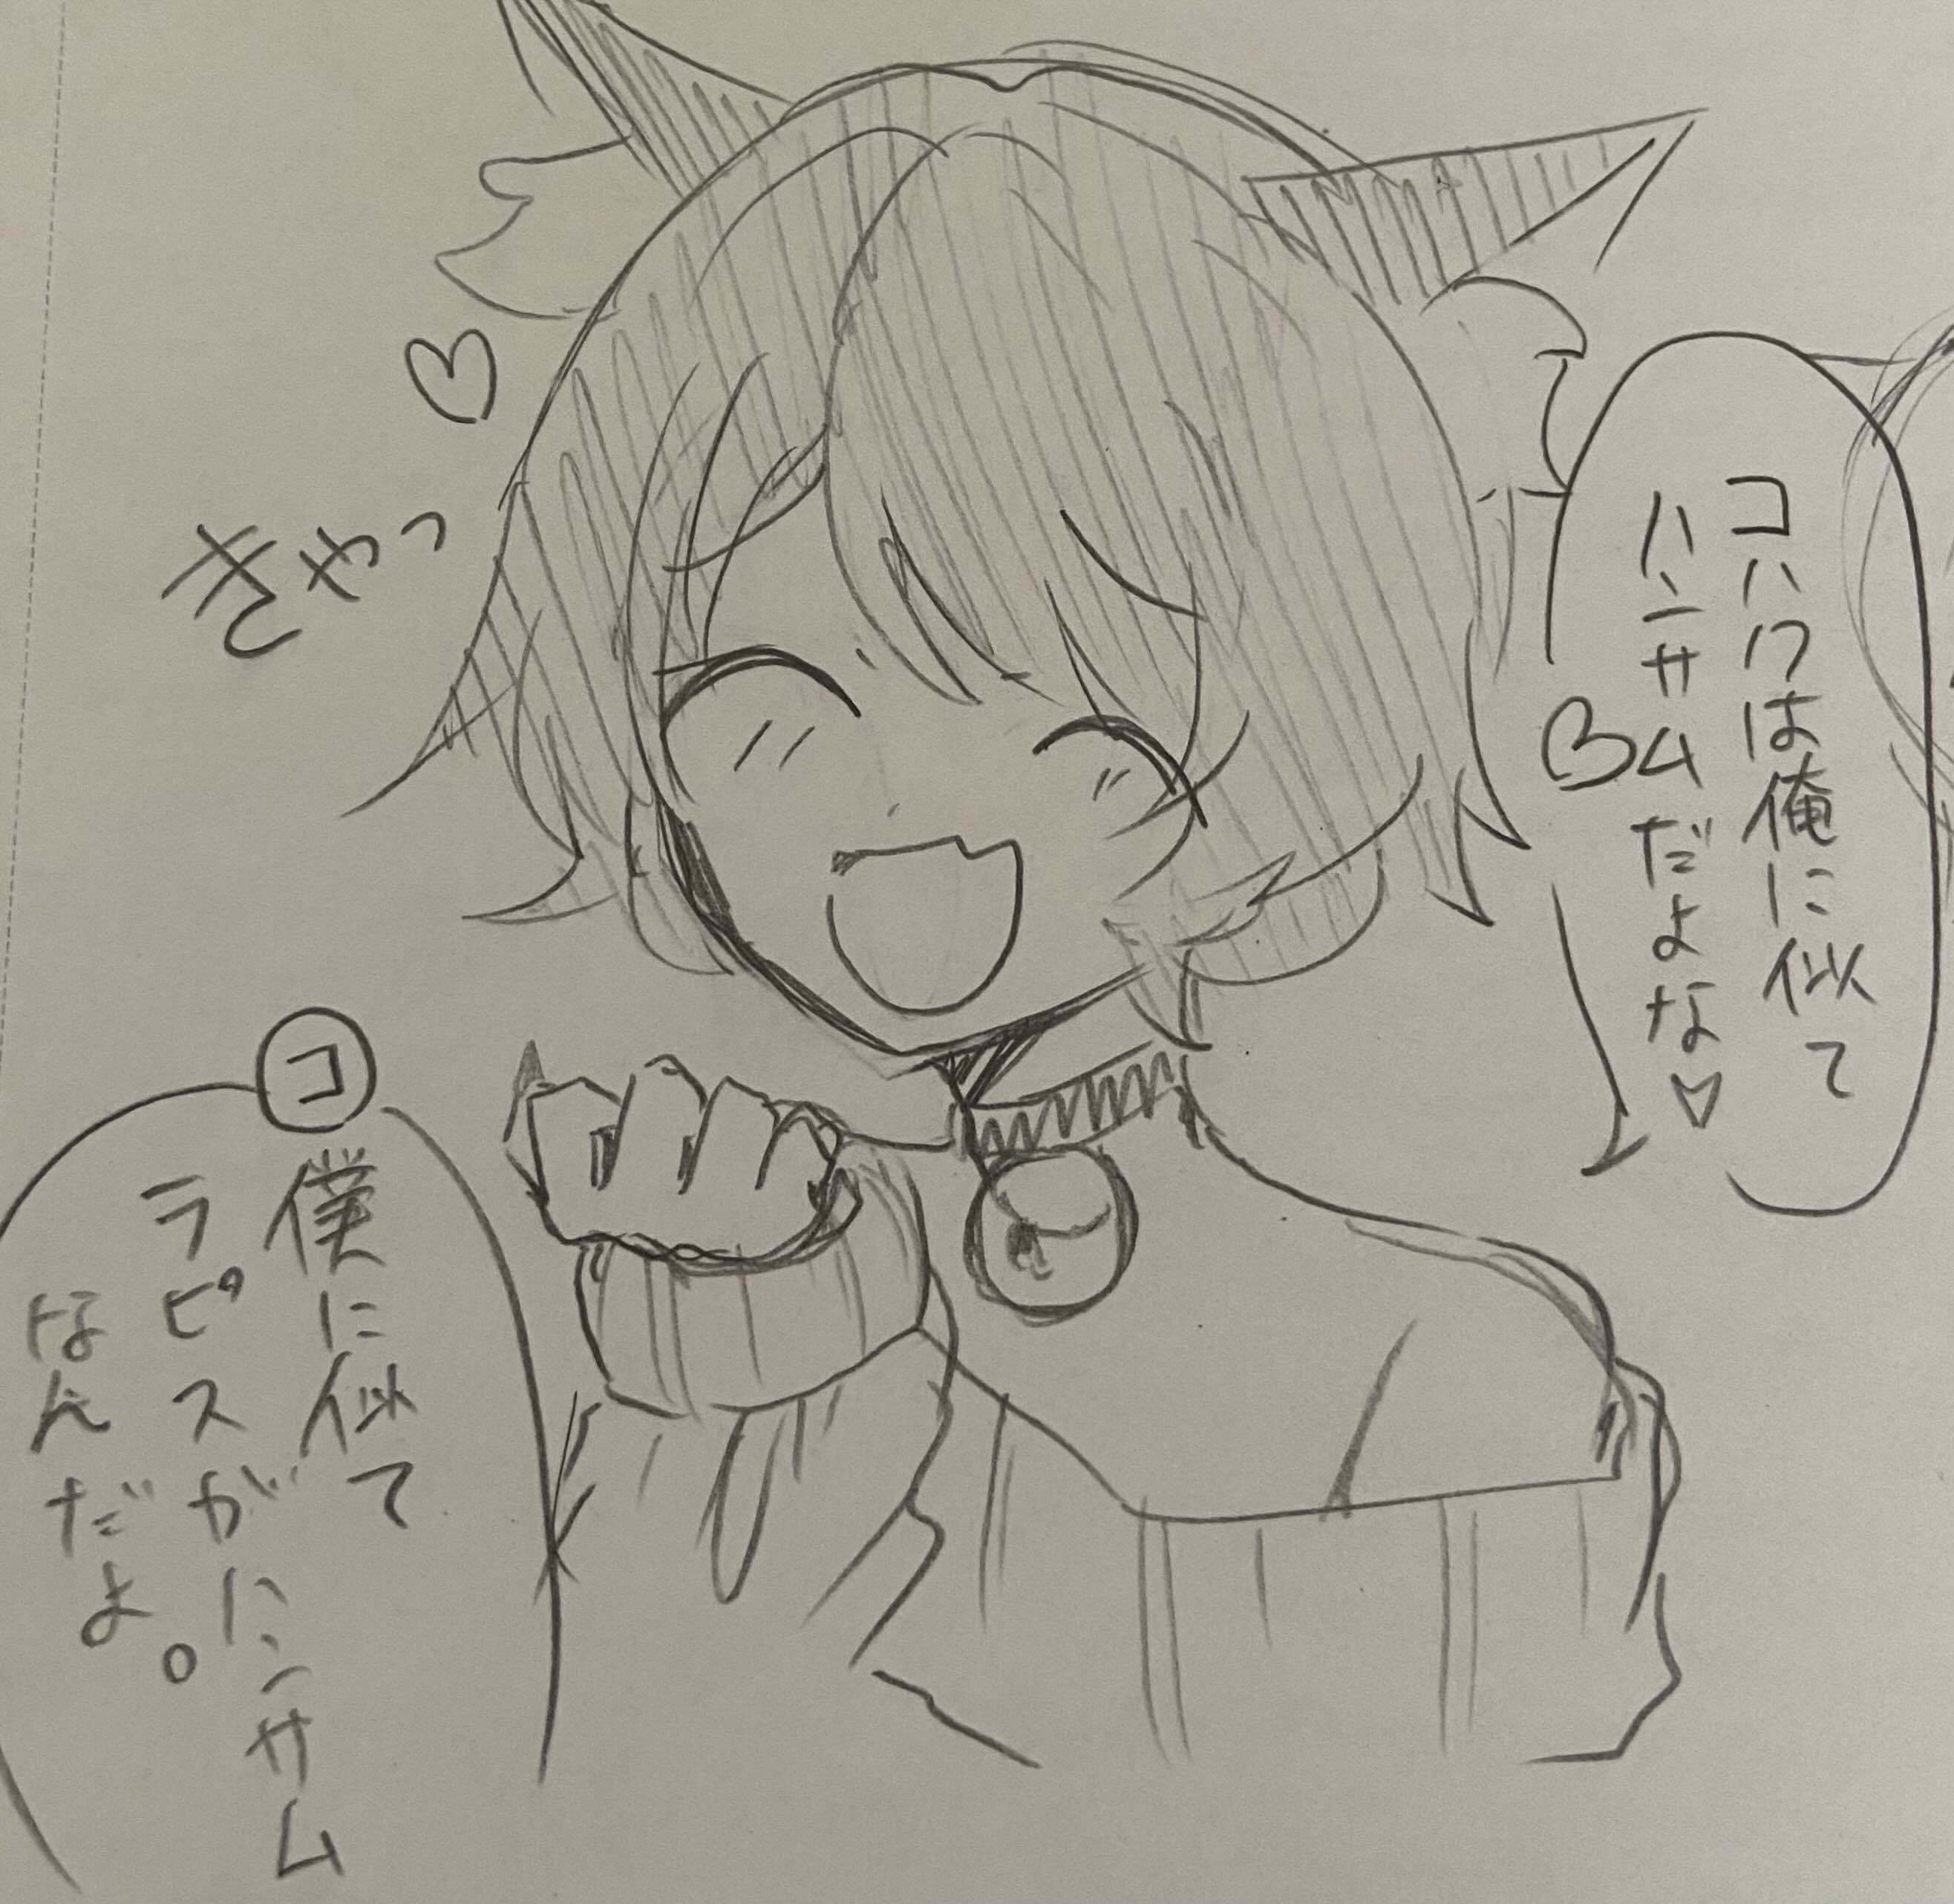 コハクは俺に似て
ハンサムだよな♡
きゃっ♡
コ
僕に似て
ラピスがハンサム
なんだよ。